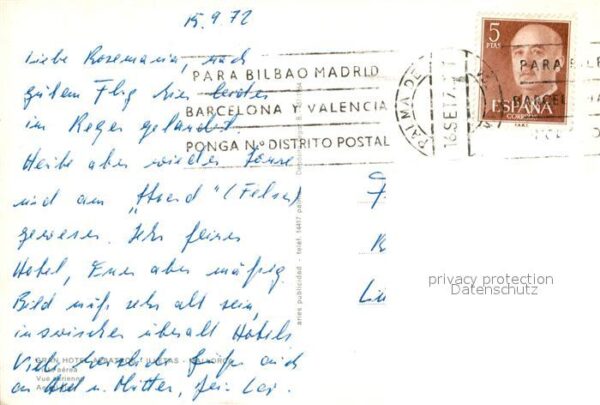 15.9.72
Liebe Rosemarie, nach
gutem Flug hier
im Regen gelandet.
Heute aber wieder Sonne
und am "Strand" (Felsen)
gewesen. Sehr feines
Hotel, Essen aber mäßig.
Bild muß sehr alt sein,
inzwischen überall Hotels
Viele herzliche Grüße auch
an Axel u. Mutter,
PARA BILBAO MADRID
BARCELONA Y VALENCIA
PONGA Nº DISTRITO POSTAL
PALMA DE
16 SET 72
5
PTAS
ESPAÑA
CORREOS
PARA BILB
BARCEL
aries publicidad - telef. 14417 palma
GRAN HOTEL ALBATROS - ILLETAS - MALLORCA
Vista aérea
Vue aérienne
privacy protection
Datenschutz